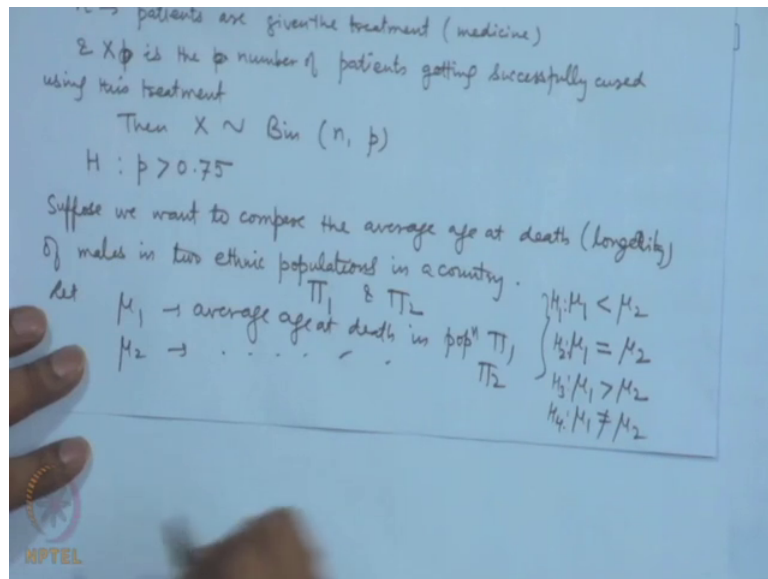 n → patients are given the treatment (medicine)
& X is the number of patients getting successfully cured
using this treatment
Then X ~ Bin (n, p)
H : p > 0.75
Suppose we want to compare the average age at death (longevity)
of males in two ethnic populations in a country.
Π1 & Π2
Let μ1 → average age at death in popn Π1
μ2 → . . . . . . Π2
H1: μ1 < μ2
H2: μ1 = μ2
H3: μ1 > μ2
H4: μ1 ≠ μ2
NPTEL